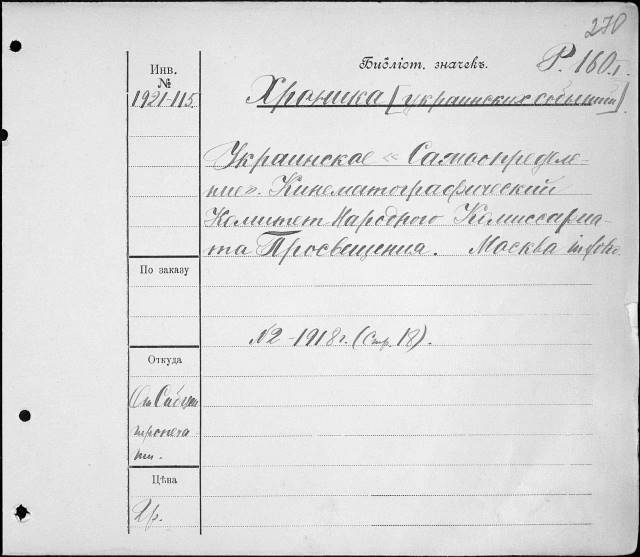 270
Инв.
№
1921-115
Библіот. значекъ.
Р. 160
Хроника [украинских событий]
Украинское "Самоопределе-
ние". Кинематографический
Комитет Народного Комиссариа-
та Просвещения. Москва in folio
По заказу
№2 - 1918 г. (Стр. 18).
Откуда
ти.
Цѣна
2р.